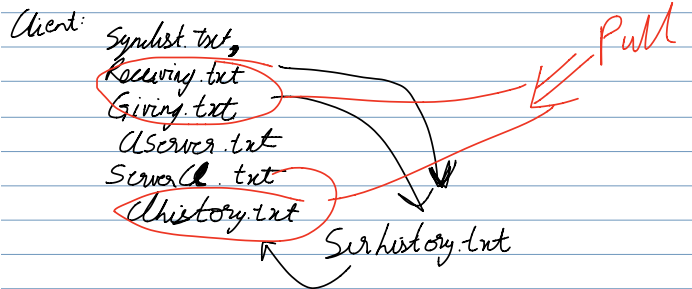 Client:
Synclist.txt,
Pull
Receiving.txt
Giving.txt
ClServer.txt
ServerCl.txt
Clhistory.txt
Serhistory.txt